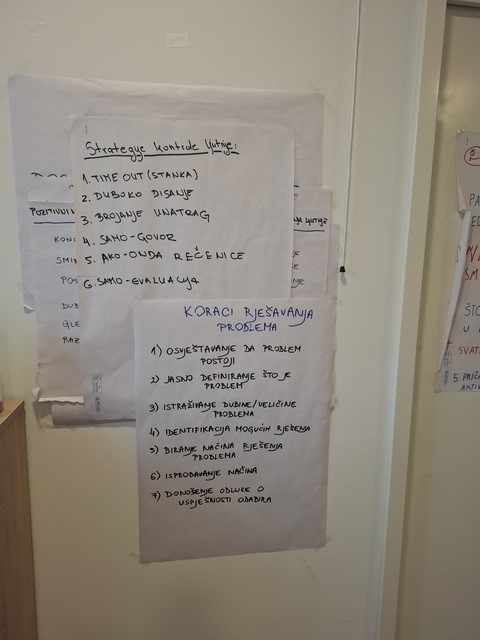 Strategije kontrole ljutnje:
1. TIME OUT (STANKA)
2. DUBOKO DISANJE
3. BROJANJE UNATRAG
4. SAMO-GOVOR
5. AKO-ONDA REČENICE
6. SAMO-EVALUACIJA
KORACI RJEŠAVANJA
PROBLEMA
1) OSVJEŠTAVANJE DA PROBLEM
POSTOJI
2) JASNO DEFINIRANJE ŠTO JE
PROBLEM
3) ISTRAŽIVANJE DUBINE/VELIČINE
PROBLEMA
4) IDENTIFIKACIJA MOGUĆIH RJEŠENJA
5) BIRANJE NAČINA RJEŠENJA
PROBLEMA
6) ISPROBAVANJE NAČINA
7) DONOŠENJE ODLUKE O
USPJEŠNOSTI ODABIRA
POZITIVNI
KONC
SMI
POS
DUB
GLE
RAZ
LJUTNJE
ŠTO
U
SVAT
5. PRIČA
AKTIV